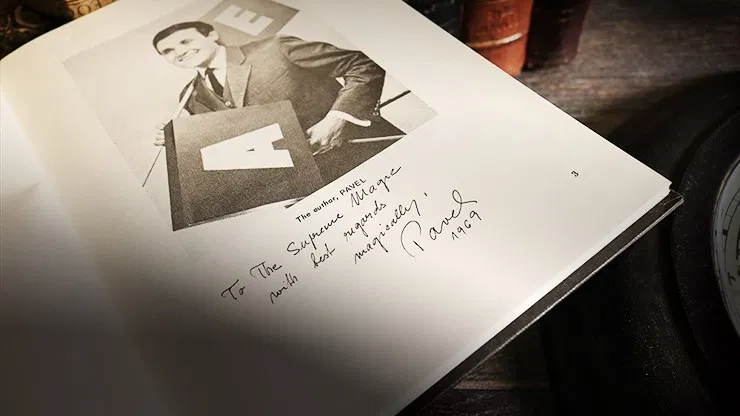 E
A
The author, PAVEL
To The Supreme Magic
with best regards
magically,
Pavel
1969
3